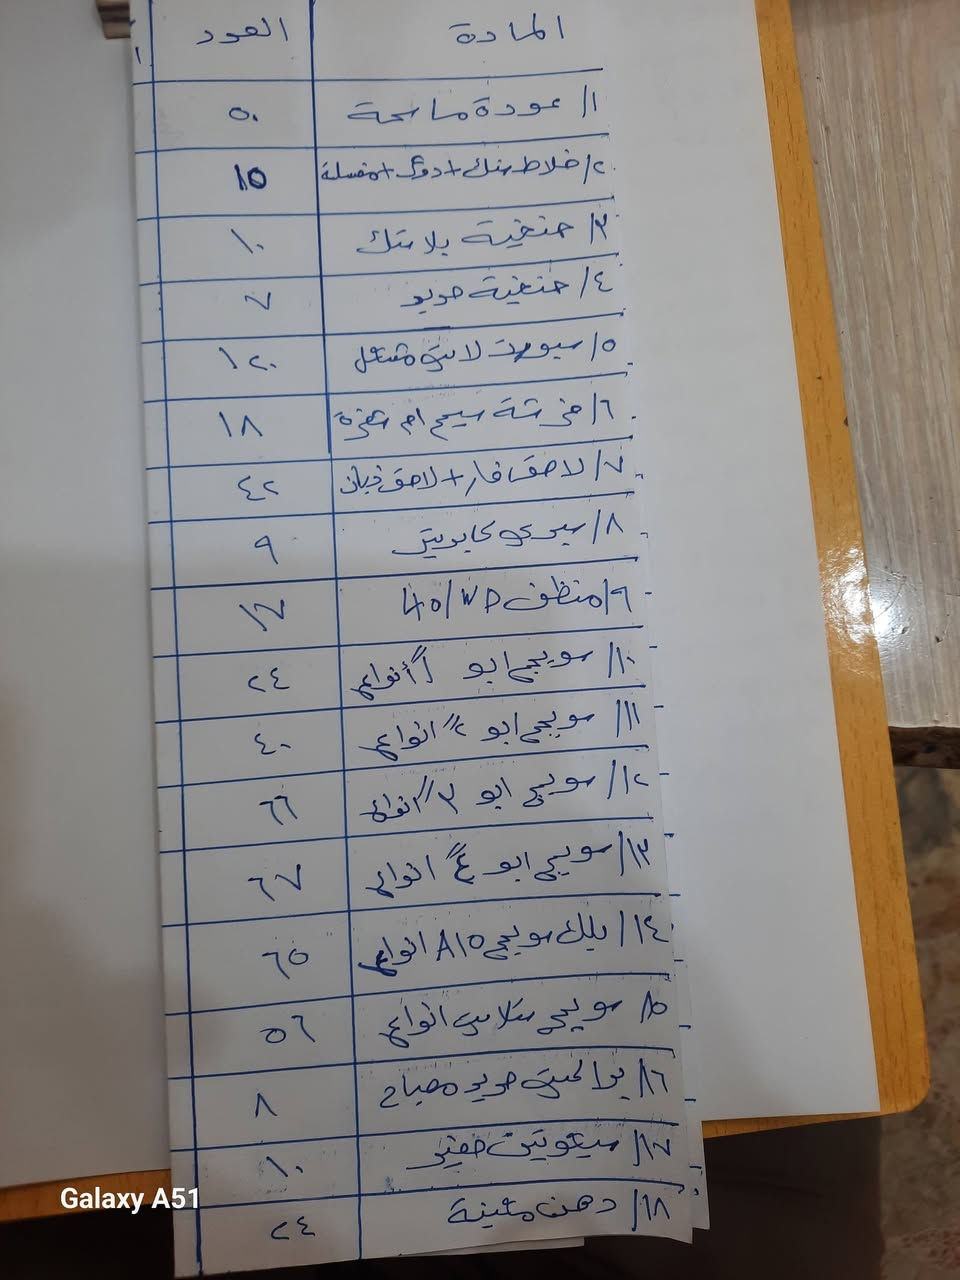 المادة العدد
١/ عودة ماسحة ٥٠
٢/ خلاط سنك + دوش + مغسلة ١٥
٣/ حنفية بلاستك ١٠
٤/ حنفية حديد ٧
٥/ سبورت لايت مشعل ١٢٠
٦/ فرشة سيم ام شفرة ١٨
٧/ لاصق فار + لاصق ذبان ٤٢
٨/ سبري كابريتر ٩
٩/ منظف WD/40 ١٧
١٠/ سويج ابو ١ أنواع ٢٤
١١/ سويج ابو ٢ انواع ٤٠
١٢/ سويج ابو ٣ انواع ٦٦
١٣/ سويج ابو ٤ انواع ٦٧
١٤/ بلك سويج A١٥ انواع ٦٥
١٥/ سويج ستلايت انواع ٥٦
١٦/ حديد مصباح ٨
١٧/ ١٠
١٨/ دهن مكينة ٢٤
Galaxy A51